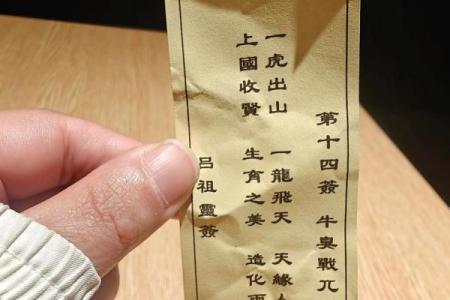 第十四簽 牛臯戰兀
一虎出山 一龍飛天 天緣
上國收賢 生育之美 造化
呂祖靈簽